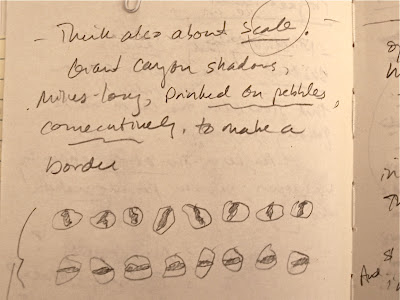 - Think also about scale. -
Grand canyon shadows,
Miles-long, printed on pebbles,
consecutively, to make a
border